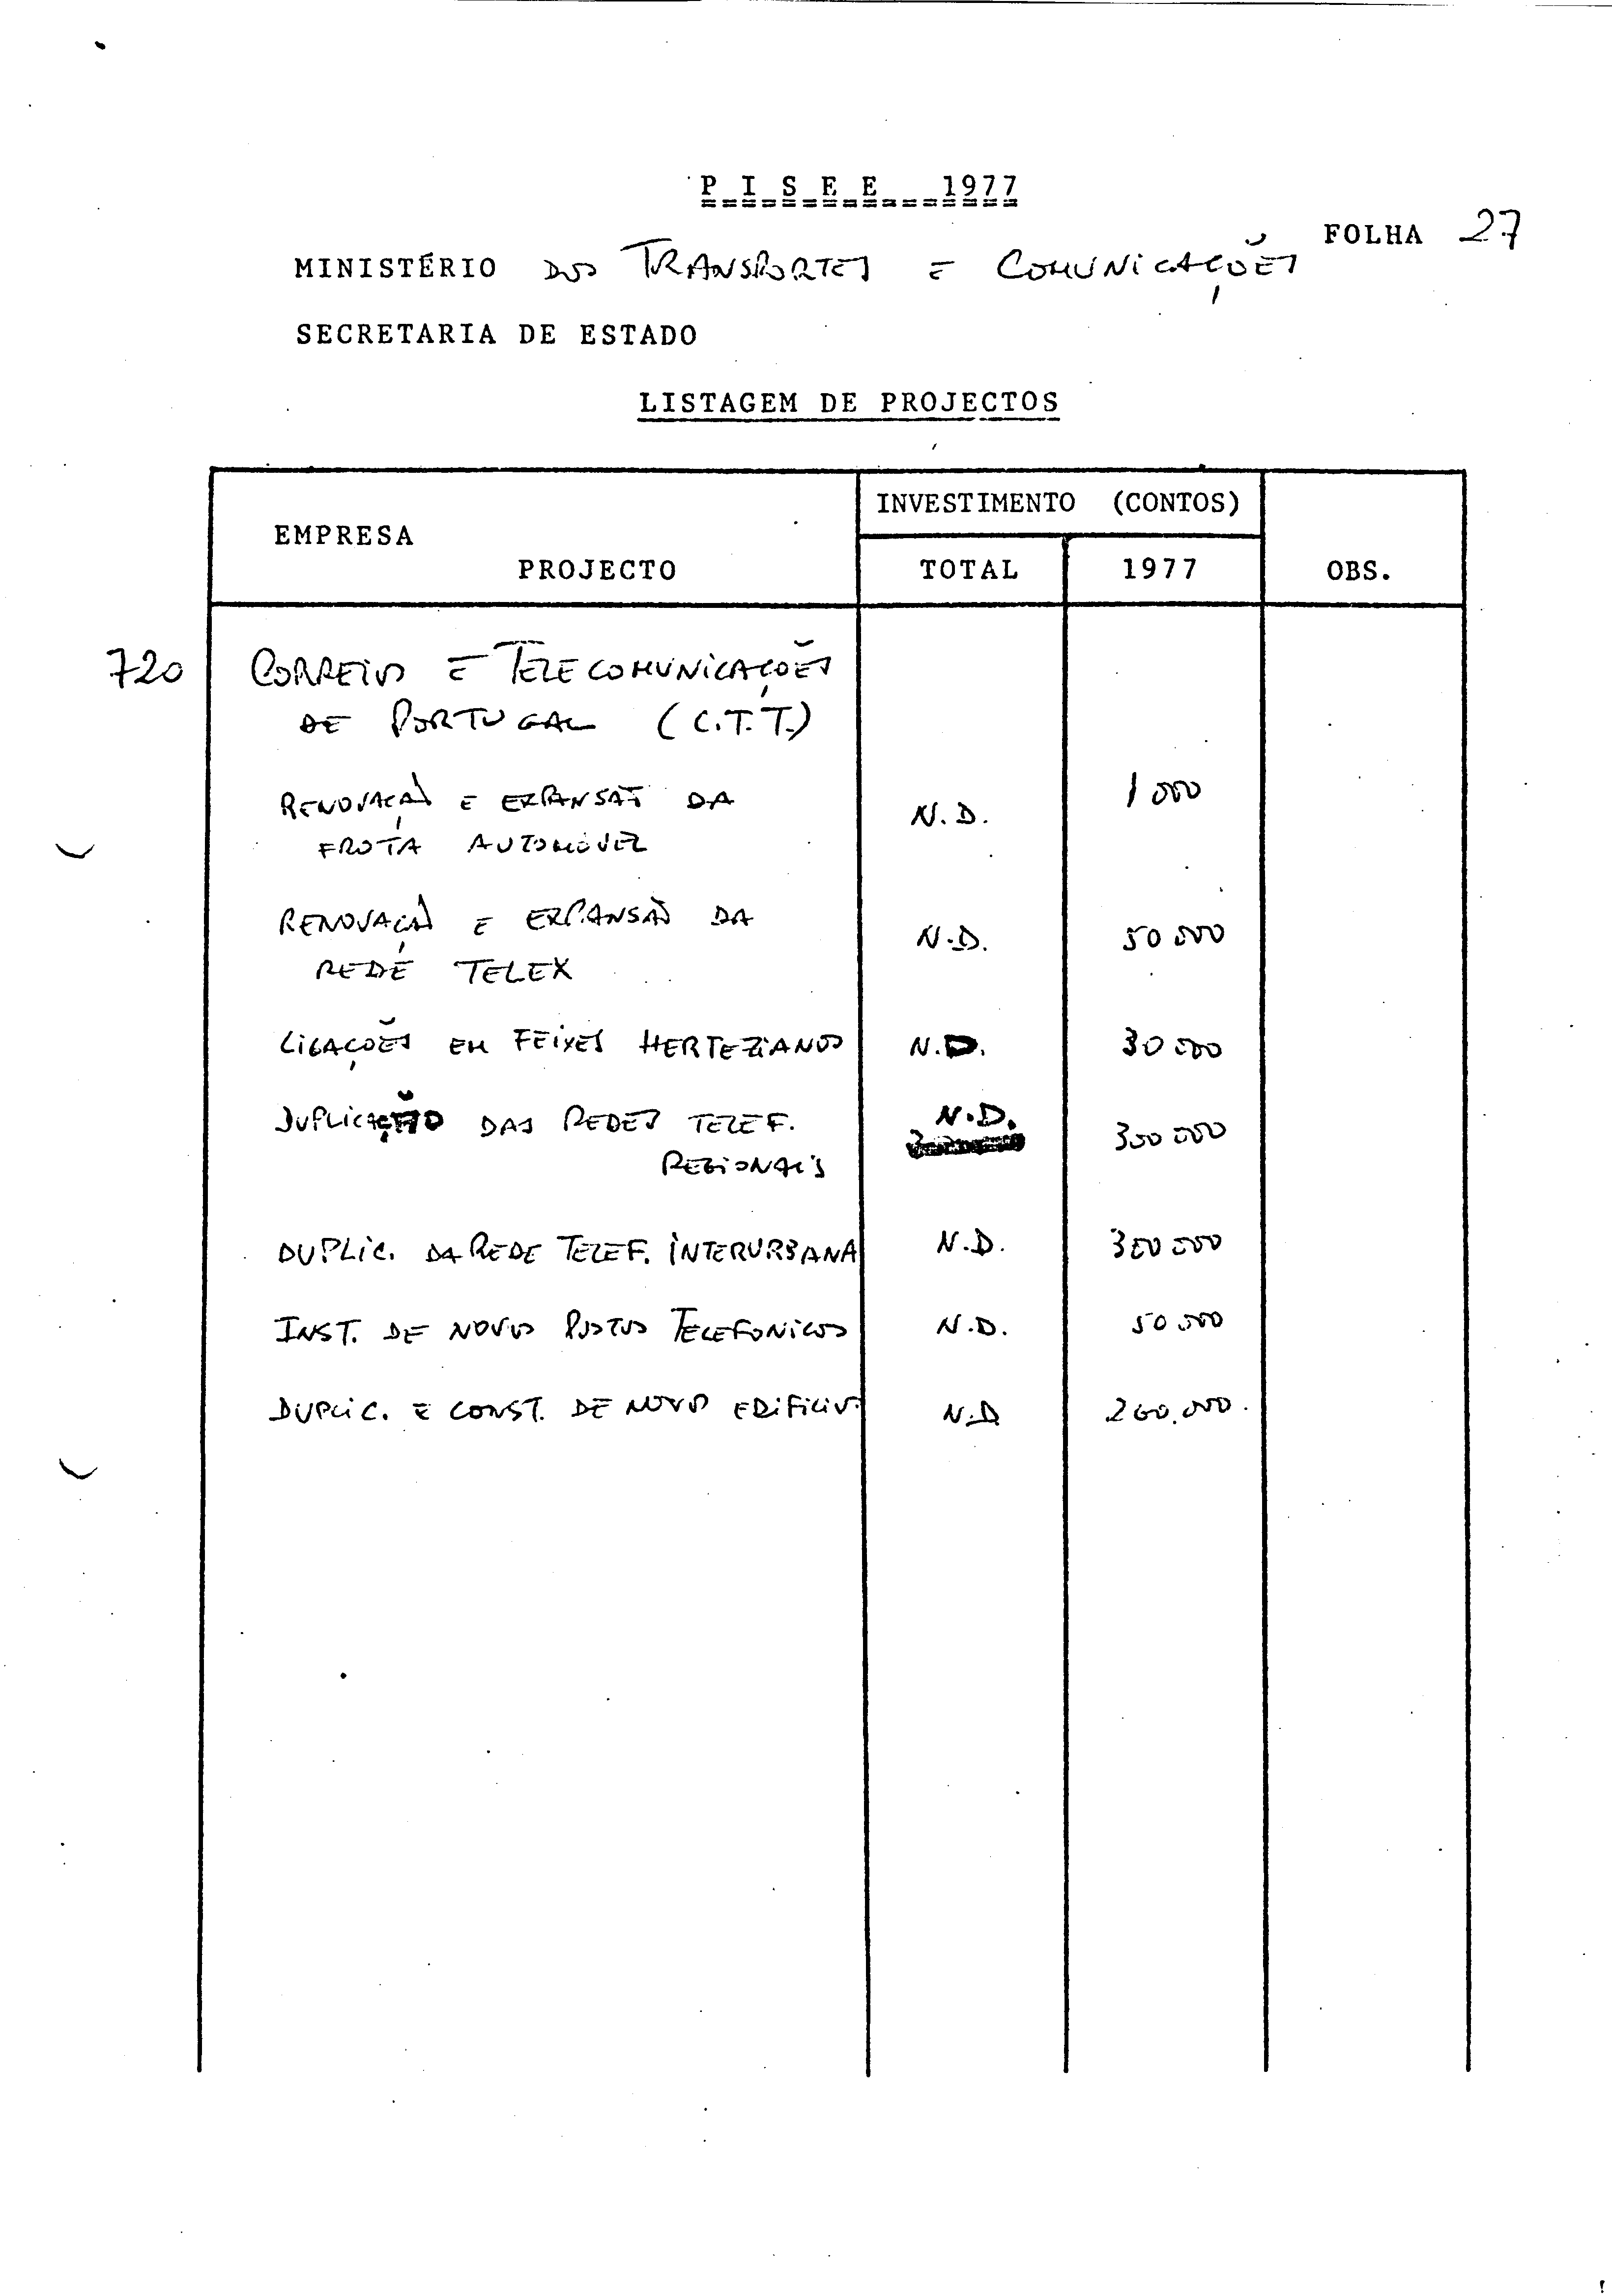 P I S E E 1977
FOLHA 27
MINISTÉRIO DOS TRANSPORTES E COMUNICAÇÕES
SECRETARIA DE ESTADO
LISTAGEM DE PROJECTOS
INVESTIMENTO (CONTOS)
EMPRESA
PROJECTO TOTAL 1977 OBS.
720 CORREIOS E TELECOMUNICAÇÕES
DE PORTUGAL (C.T.T.)
RENOVAÇÃO E EXPANSÃO DA N.D. 1 000
FROTA AUTOMÓVEL
RENOVAÇÃO E EXPANSÃO DA N.D. 50 000
REDE TELEX
LIGAÇÕES EM FEIXES HERTEZIANOS N.D. 30 000
DUPLICAÇÃO DAS REDES TELEF. N.D. 300 000
REGIONAIS
DUPLIC. DA REDE TELEF. INTERURBANA N.D. 300 000
INST. DE NOVOS POSTOS TELEFONICOS N.D. 50 000
DUPLIC. E CONST. DE NOVOS EDIFICIOS N.D 260.000.